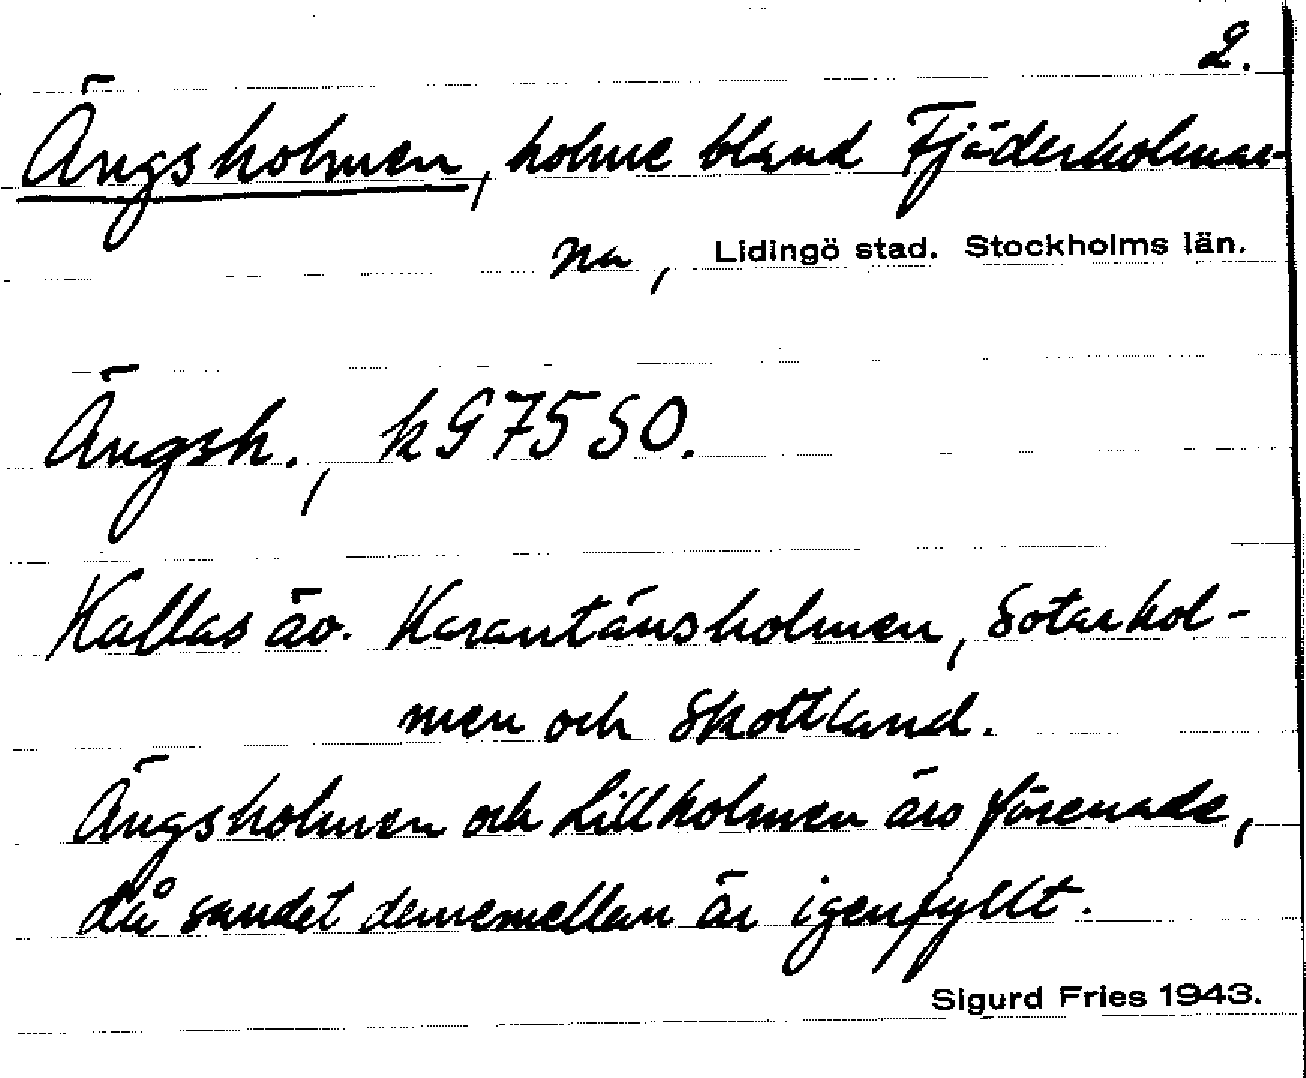 2.
Ängsholmen, holme bland Fjäderholmar-
na, Lidingö stad. Stockholms län.
Ängsh., k 97 75 SO.
Kallas äv. Karantänsholmen, Sotarhol-
men och Skottland.
Ängsholmen och Lillholmen äro förenade,
då sundet dememellan är igenfyllt.
Sigurd Fries 1943.